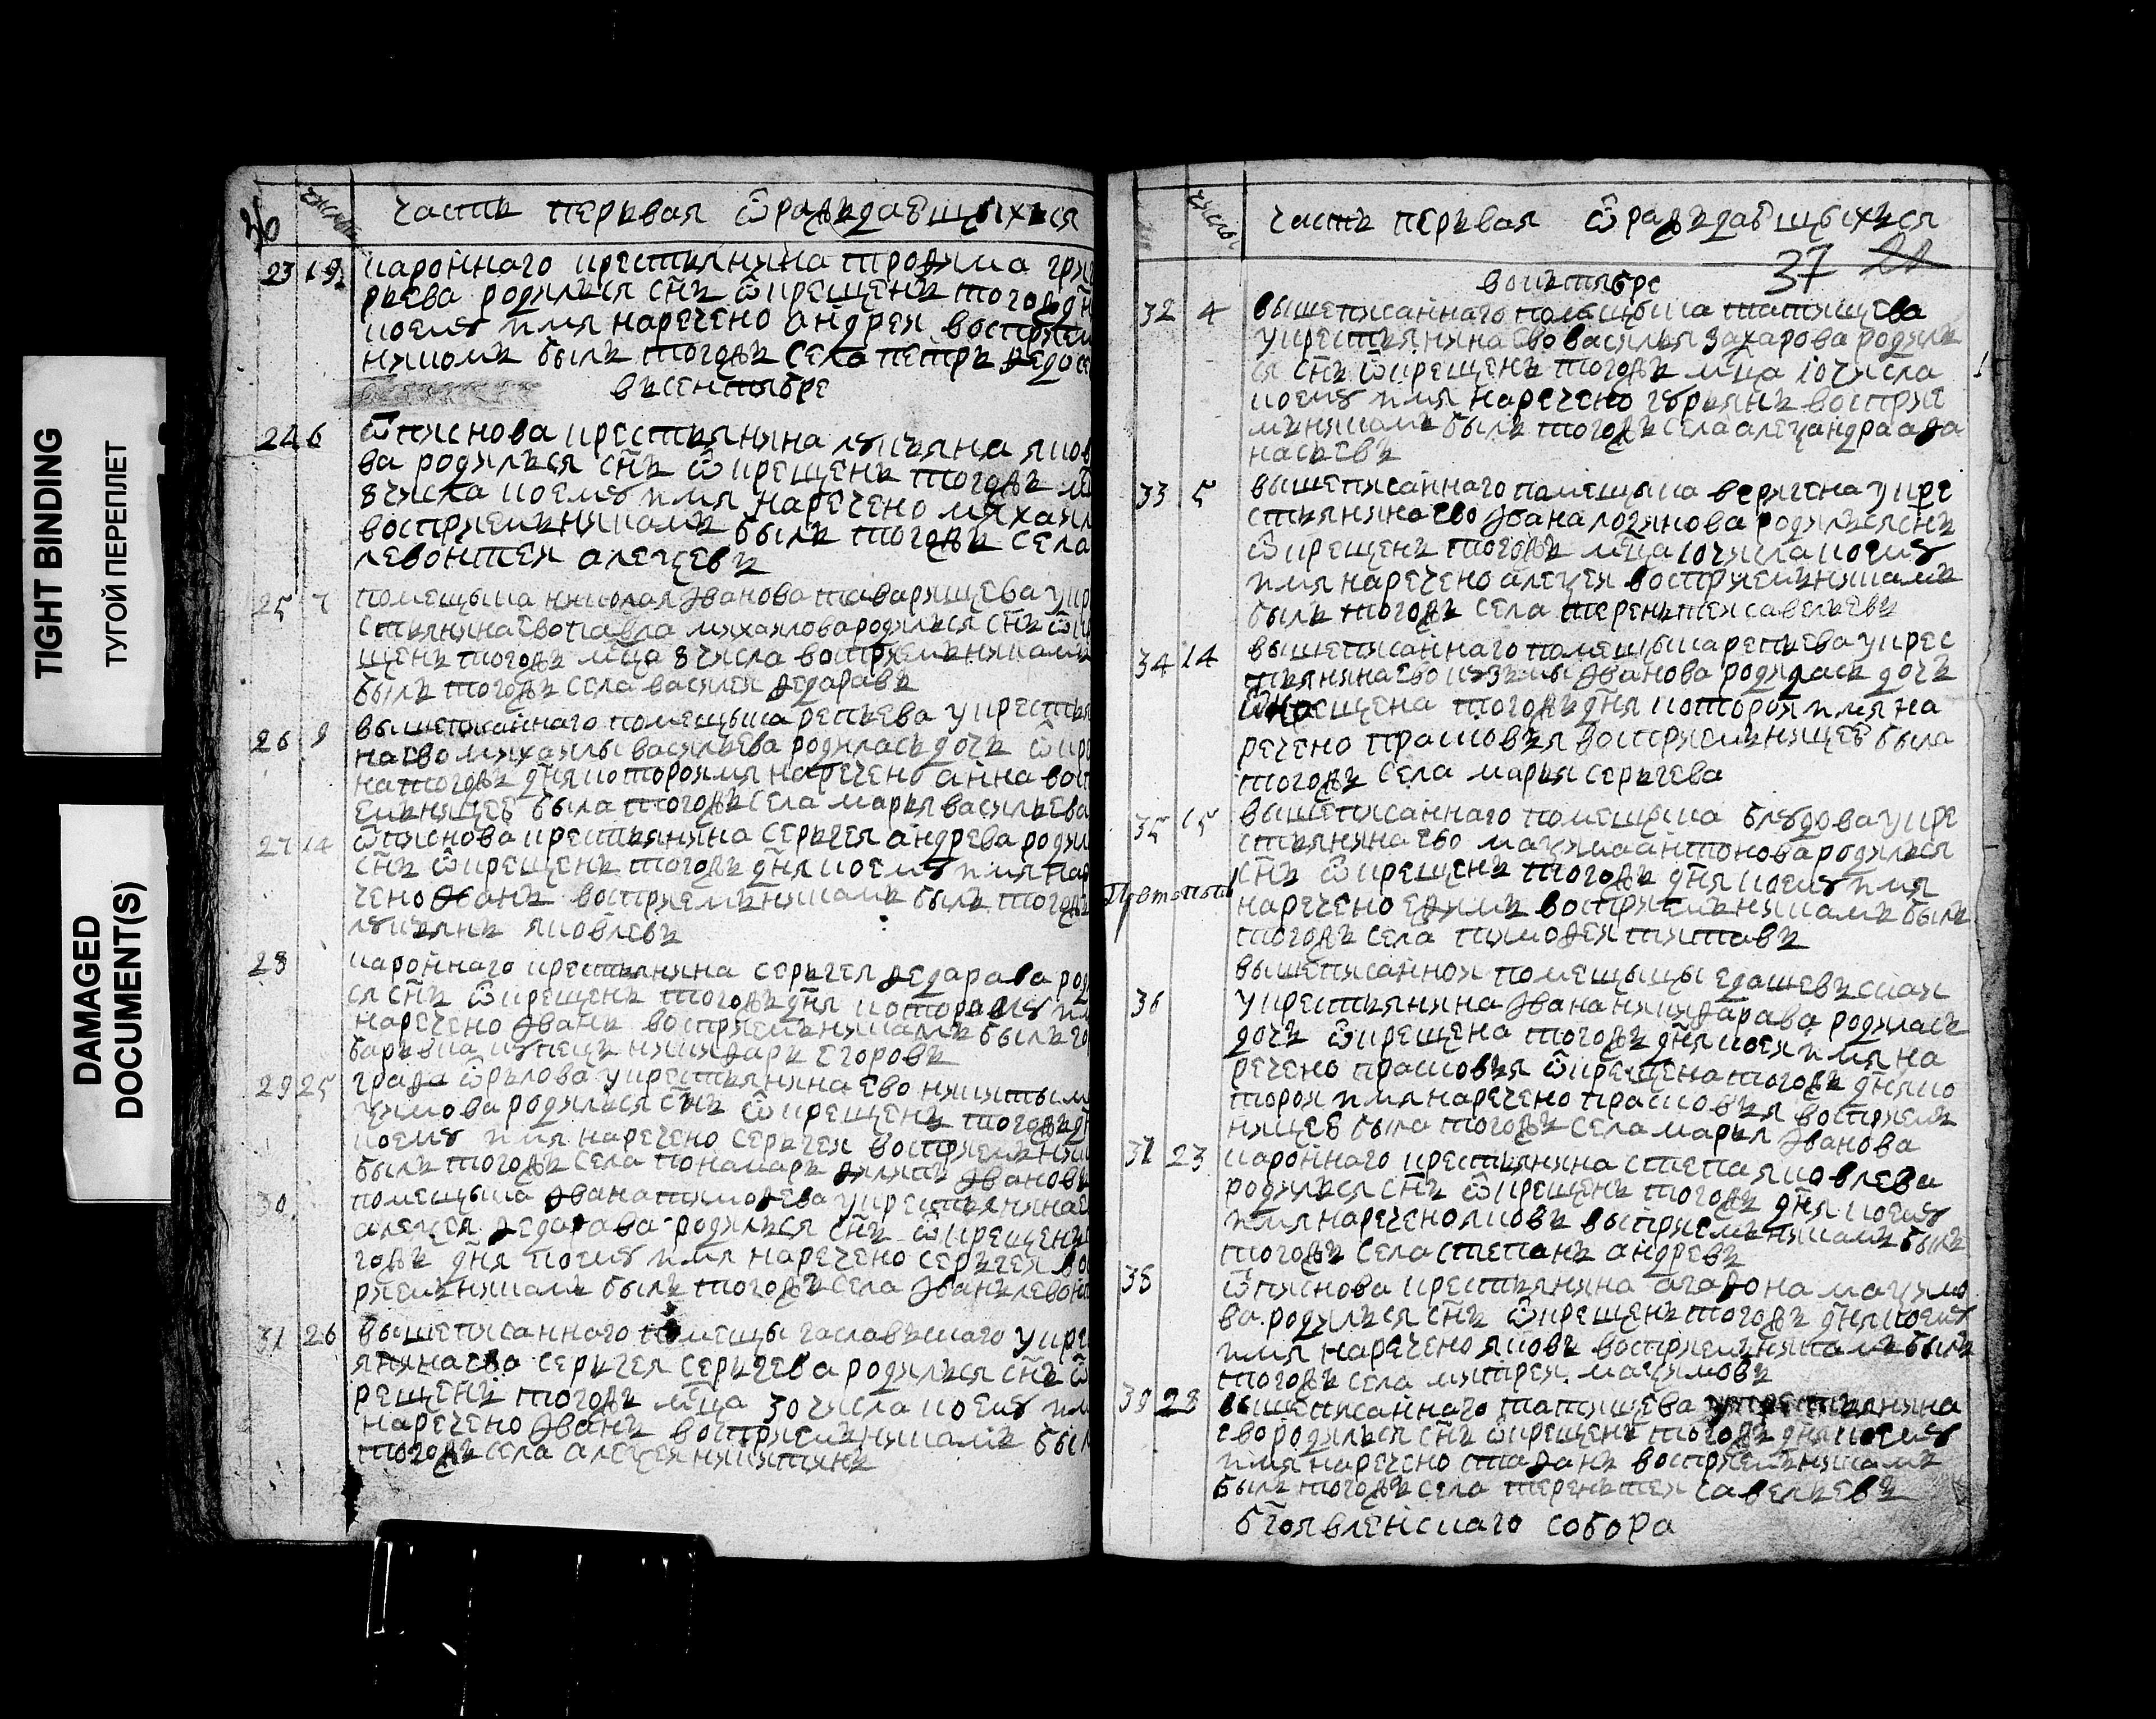 TIGHT BINDING
ТУГОЙ ПЕРЕПЛЕТ
DAMAGED
DOCUMENT(S)
36 числы
часть перьвая ѡ ражъдавшыхъся
23 19 каронного крестьянина трофима гри
рьева родилъся сн҃ъ ѡкрещенъ тогожъ дн
коему имя наречено андреи воспрѣем
никомъ былъ тогожъ села петръ федос
въ сентябре
24 6 ѿпискова крестьянина лукьяна яков
ва родилъся сн҃ъ ѡкрещенъ тогожъ м
8 числа коему имя наречено михаил
восприемъникамъ былъ тогожъ села
левонтеи алеѯевъ
25 7 помещыка николая иванова таварищева у кр
стьянина ево павла михаилова родилъся сн҃ъ ѡк
щенъ тогожъ мц҃а 8 числа восприемъникамъ
былъ тогожъ села василеи федаравъ
26 9 вышеписанного помещыка репьева у крестья
на ево михаилы васильева родилась дочь ѡкр
на тогожъ дн҃я которои имя наречено анна вос
емънищеѣ была тогожъ села марья васильева
27 14 ѿпискова крестьянина серьгея андрева роди
сн҃ъ ѡкрещенъ тогожъ дн҃я коему имя нар
чено иванъ восприемъникамъ былъ тогожъ
лукьянъ яковлевъ
28 каронного крестьянина серьгея федарава род
ся сн҃ъ ѡкрещенъ тогожъ дн҃я
наречено иванъ восприемъникамъ былъ го
никифаръ егоровъ
29 25 графа ѡрьлова у крестьянина ево никиты м
родилъся сн҃ъ ѡкрещенъ тогожъ д
коему имя наречено серьгеи восприемъник
былъ тогожъ села понамарь филипъ ивановъ
30 помещыка ивана тимофева у крестьянина
алеѯея федарава родилъся сн҃ъ ѡкрещенъ
гожъ дн҃я коему имя наречено серьгеи во
рхемъникамъ былъ тогожъ села иванъ левон
31 26 вышеписанного у кре
янина ево серьгея серьгева родилъся сн҃ъ ѡ
рещенъ тогожъ мц҃а 30 числа коему им
наречено иванъ восприемъникамъ был
тогожъ села алеѯеи никитинъ
числы
часть перьвая ѡ ражъдавшыхъся
37
в октябре
32 4 вышеписанного помещыка татищева
у крестьянина ево василья захарова родилъ
ся сн҃ъ ѡкрещенъ тогожъ мц҃а 10 числа
коему имя наречено гурьянъ восприе
мъникамъ былъ тогожъ села алеѯандра афа
насьевъ
33 5 вышеписанного помещыка веригена у кре
стьянина ево ивана логинова родилъся сн҃ъ
ѡкрещенъ тогожъ мц҃а 10 числа коему
имя наречено алеѯеи восприемъникамъ
былъ тогожъ села терентеи савельевъ
34 14 вышеписанного помещыка репьева у крес
тьянина ево козьмы иванова родилась дочь
ѡкрещена тогожъ дн҃я которои имя на
речено прасковья восприемънищеѣ была
тогожъ села марья серьгева
35 15 вышеписанного помещыка блудова у кре
стьянина ево маѯима антонова родилъся
сн҃ъ ѡкрещенъ тогожъ дн҃я коему имя
Протопопъ
наречено ефимъ восприемъникамъ былъ
тогожъ села тимофеи титавъ
вышеписанной помещыцы едашевъскаи
36 у крестьянина ивана никифарава родилась
дочь ѡкрещена тогожъ дн҃я коеи имя на
речено прасковья ѡкрещена тогожъ дн҃я ко
торои имя наречено прасковья восприемъ
нищеѣ была тогожъ села марья иванова
37 23 каронного крестьянина степа яковлева
родилъся сн҃ъ ѡкрещенъ тогожъ дн҃я коему
имя наречено яковъ восприемъникамъ былъ
тогожъ села степанъ андревъ
38 ѿпискова крестьянина агафона маѯимо
ва родилъся сн҃ъ ѡкрещенъ тогожъ дн҃я коему
имя наречено яковъ восприемъникамъ былъ
тогожъ села митреи маѯимовъ
39 28 вышеписанного татищева у крестьянина
ево родилъся сн҃ъ ѡкрещенъ тогожъ дн҃я коему
имя наречено стафанъ восприемъникамъ
былъ тогожъ села терентеи савельевъ
бг҃оявленскаго собора